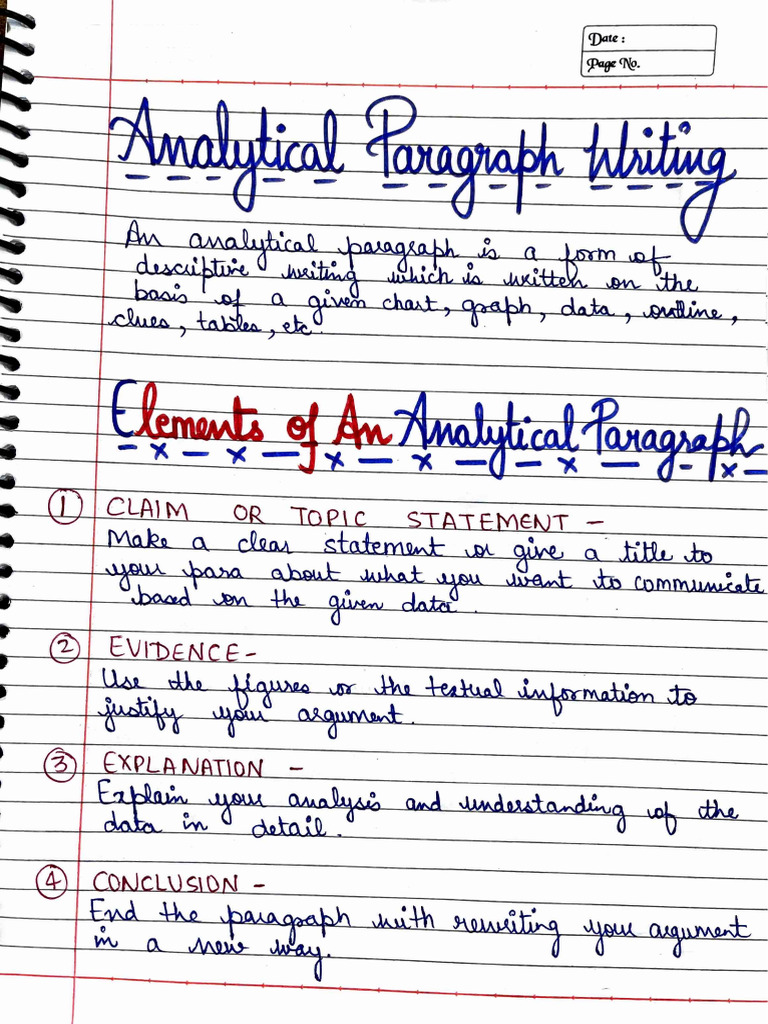 Date :
Page No.
Analytical Paragraph Writing
An analytical paragraph is a form of
descriptive writing which is written on the
basis of a given chart, graph, data, outline,
clues, tables, etc.
Elements of An Analytical Paragraph
1 CLAIM OR TOPIC STATEMENT -
Make a clear statement or give a title to
your para about what you want to communicate
based on the given data.
2 EVIDENCE-
Use the figures or the textual information to
justify your argument.
3 EXPLANATION -
Explain your analysis and understanding of the
data in detail.
4 CONCLUSION -
End the paragraph with rewriting your argument
in a new way.